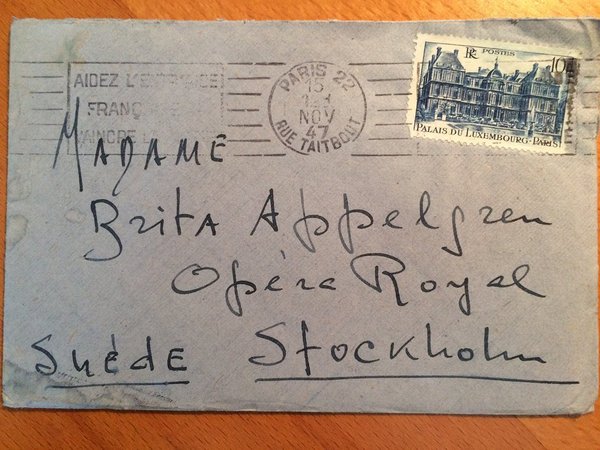 AIDEZ L'
FRANÇ
VAINCRE
PARIS 22
15
NOV
47
RUE TAITBOUT
RF POSTES 10F
PALAIS DU LUXEMBOURG-PARIS
MADAME
Brita Appelgren
Opéra Royal
Suède Stockholm